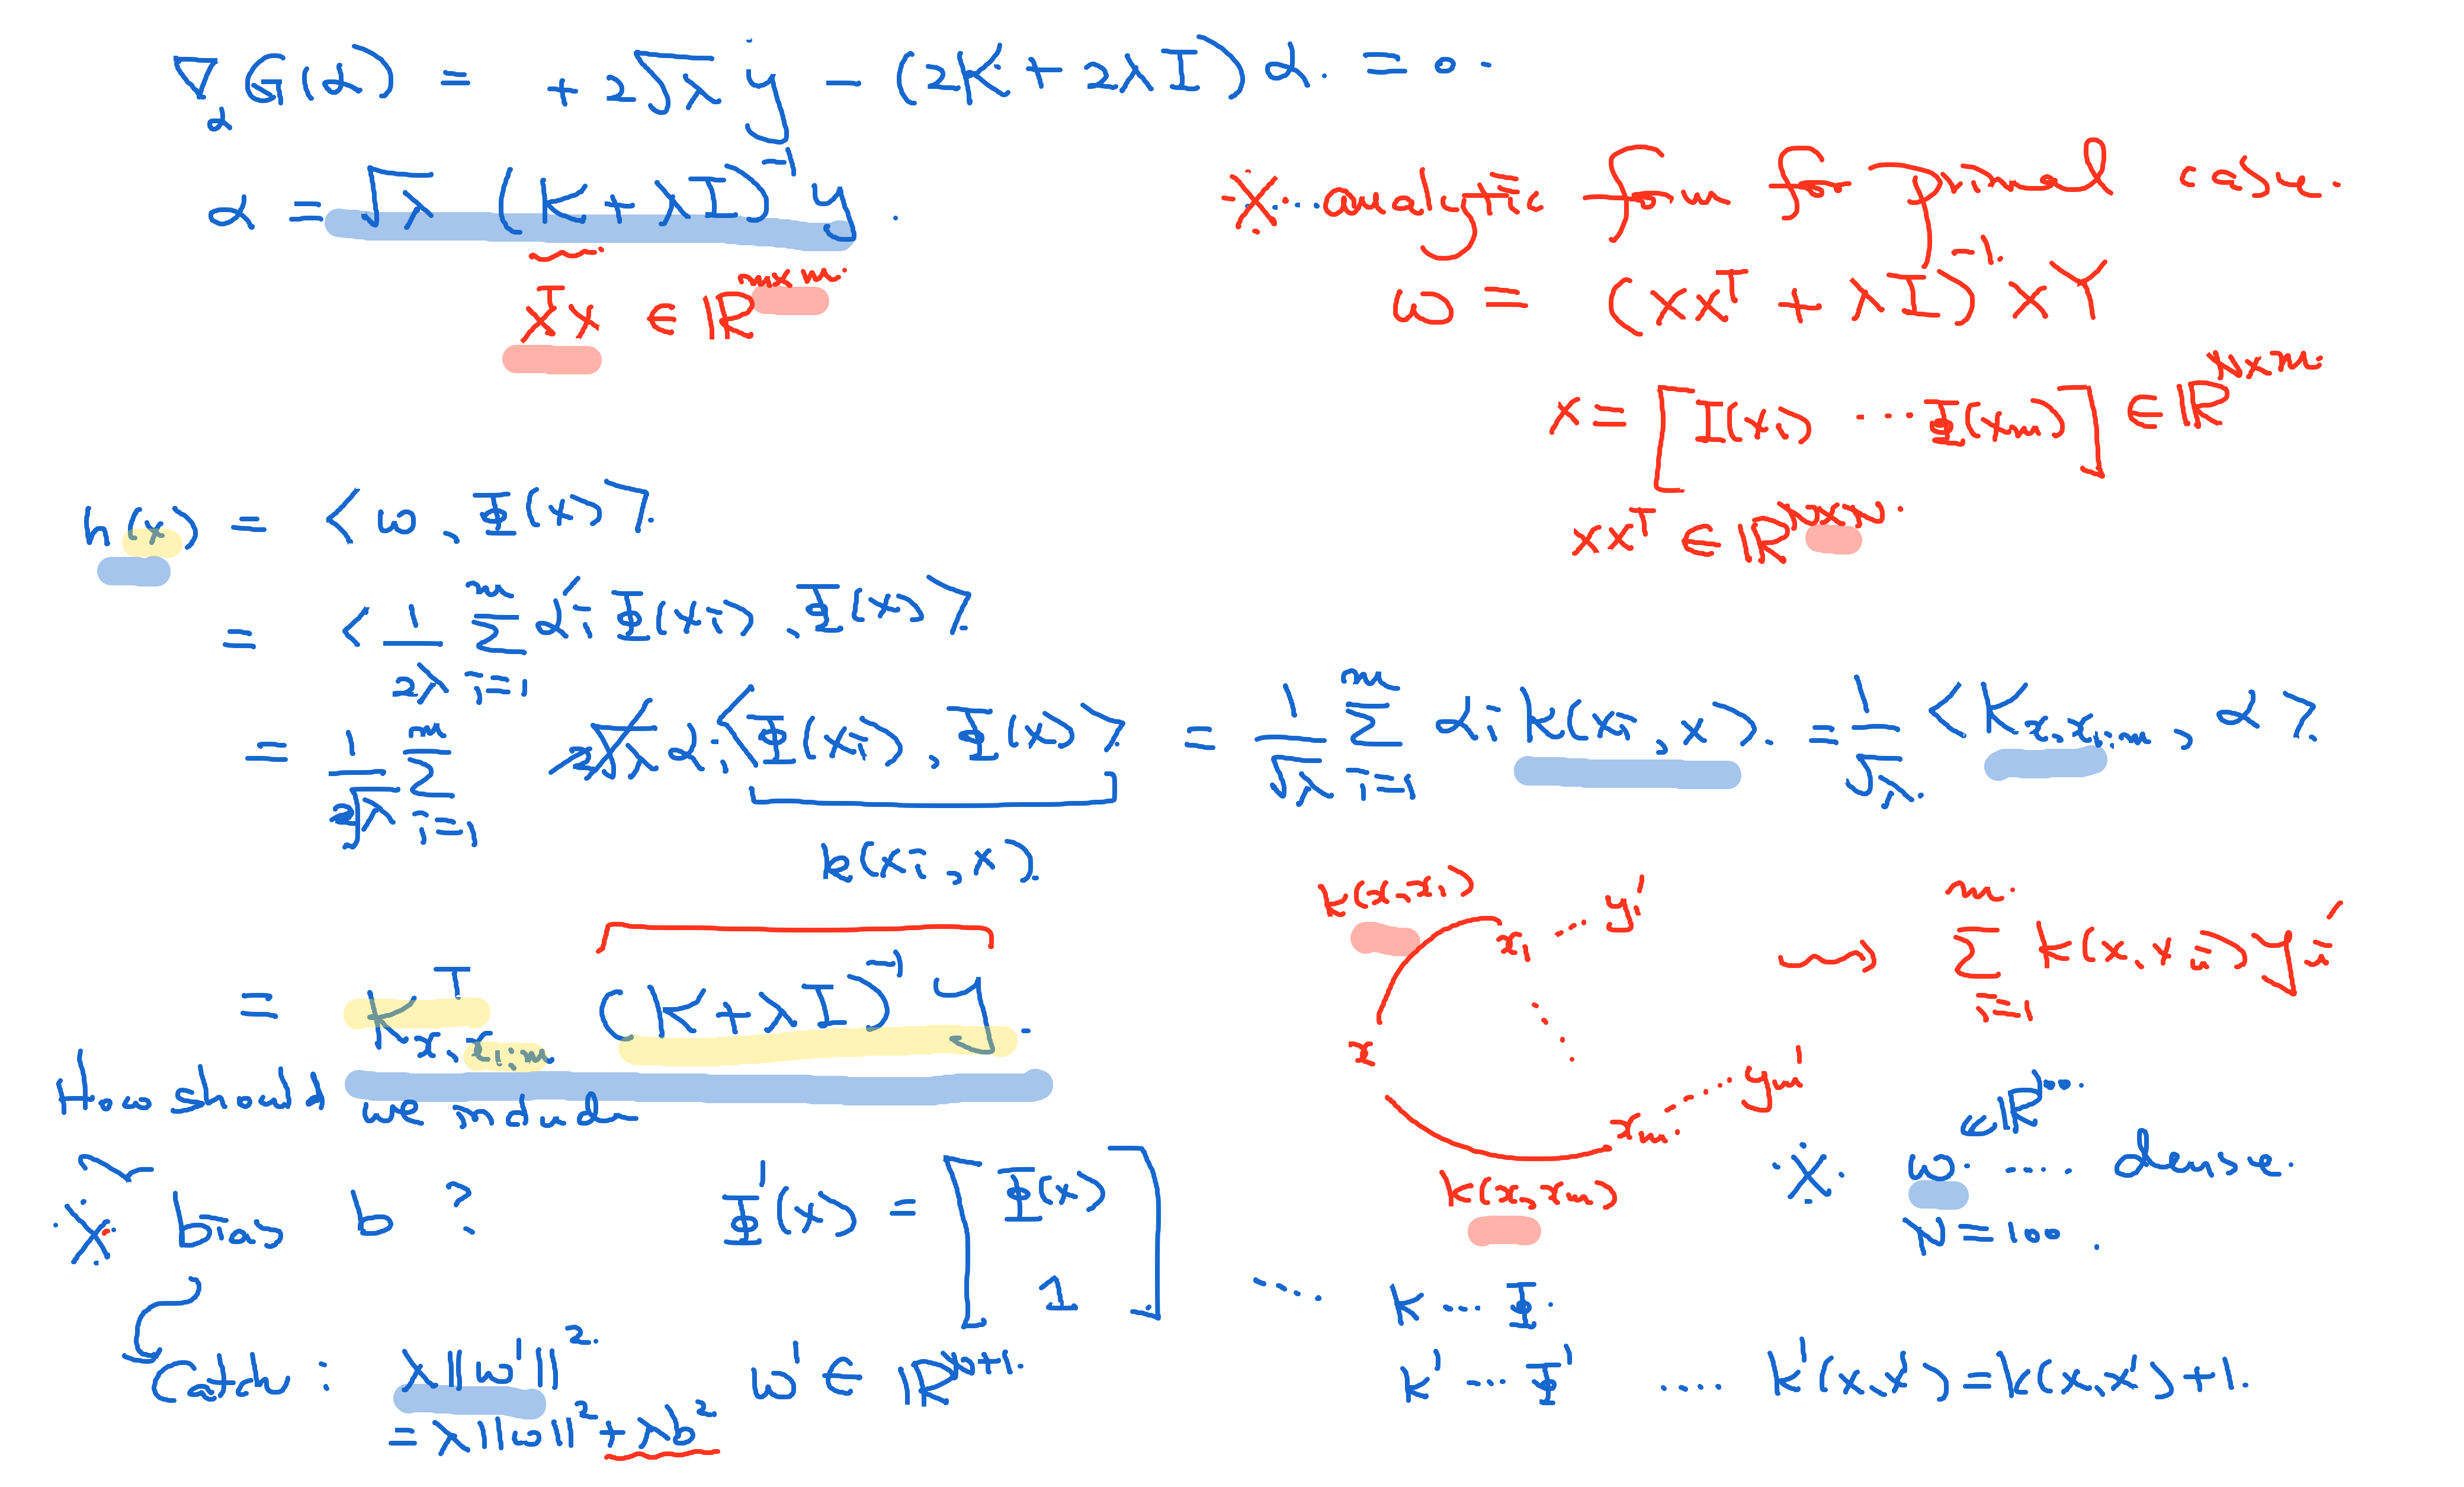 ∇_α G(α) = + 2√λ y − (2K + 2λI) α. = 0.
α = √λ (K + λI)^{-1} y.
X^T X ∈ ℝ^{m×m}.
※ ... analytic form for primal
w = (XX^T + λI)^{-1} XY
X = [Φ(x_1) ... Φ(x_m)] ∈ ℝ^{N×m}.
XX^T ∈ ℝ^{N×N}.
h(x) = <w, Φ(x)>.
= <1/2λ Σ_{i=1}^m α'_i Φ(x_i), Φ(x)>.
= 1/2λ Σ_{i=1}^m 2√λ α_i <Φ(x_i), Φ(x)> = 1/√λ Σ_{i=1}^m α_i k(x_i, x). = 1/√λ <K_{x,x_{1:m}}, α>.
k(x_i, x).
= K^T_{x,x_{1:m}} (K + λI)^{-1} y.
How should we include
※ bias b ?
Φ'(x) = [Φ(x) 1]
... K ... Φ.
K' ... Φ' .... K'(x,x') = K(x,x') + 1.
Catch : λ||w'||^2. w' ∈ ℝ^{N+1}.
= λ||w||^2 + λb^2
k(x,x_1)
x_1 ... y_1'
x
x_m. ... y_m'
K(x,x_m)
⇝ Σ_{i=1}^m K(x,x_i) y_i'
※. w. .... dense.
∈ ℝ^{100}.
N = 100.